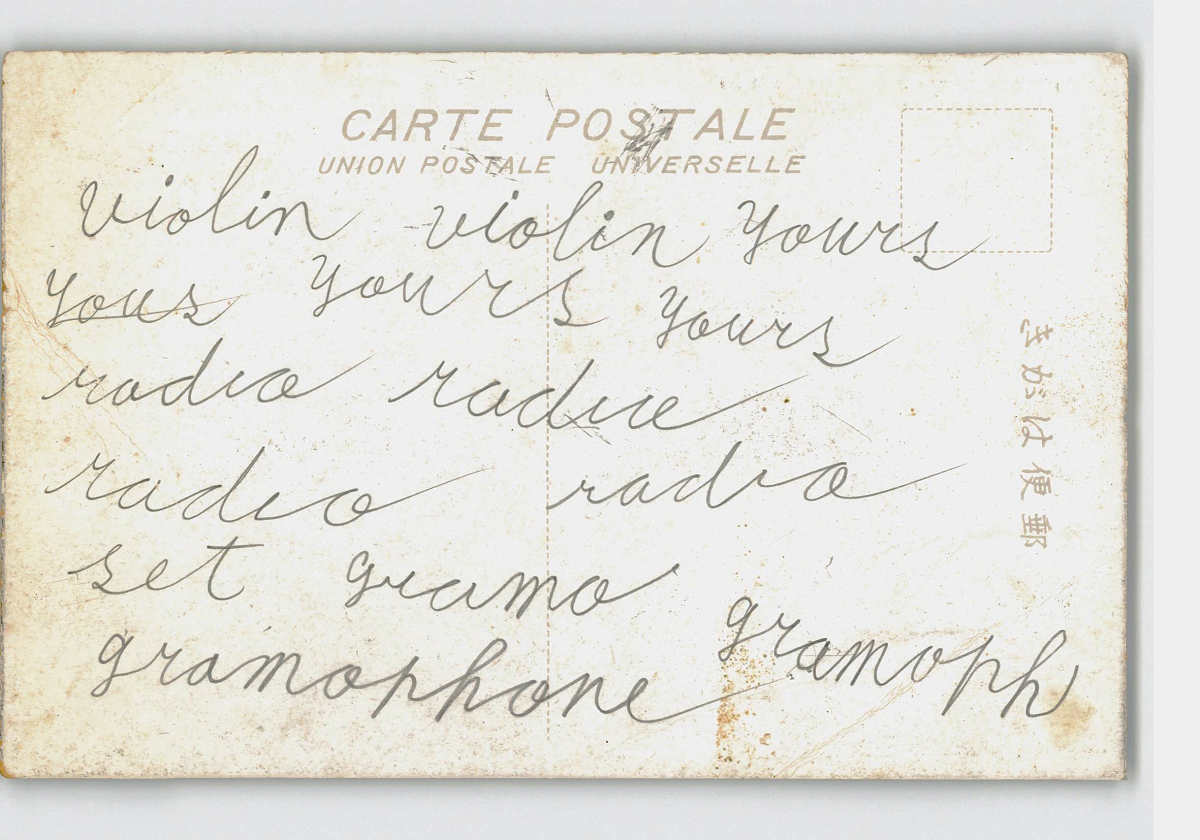 CARTE POSTALE
UNION POSTALE UNIVERSELLE
violin violin yours
yous yours yours
radio radio
radio radio
set gramo
gramophone gramoph
きがは便郵